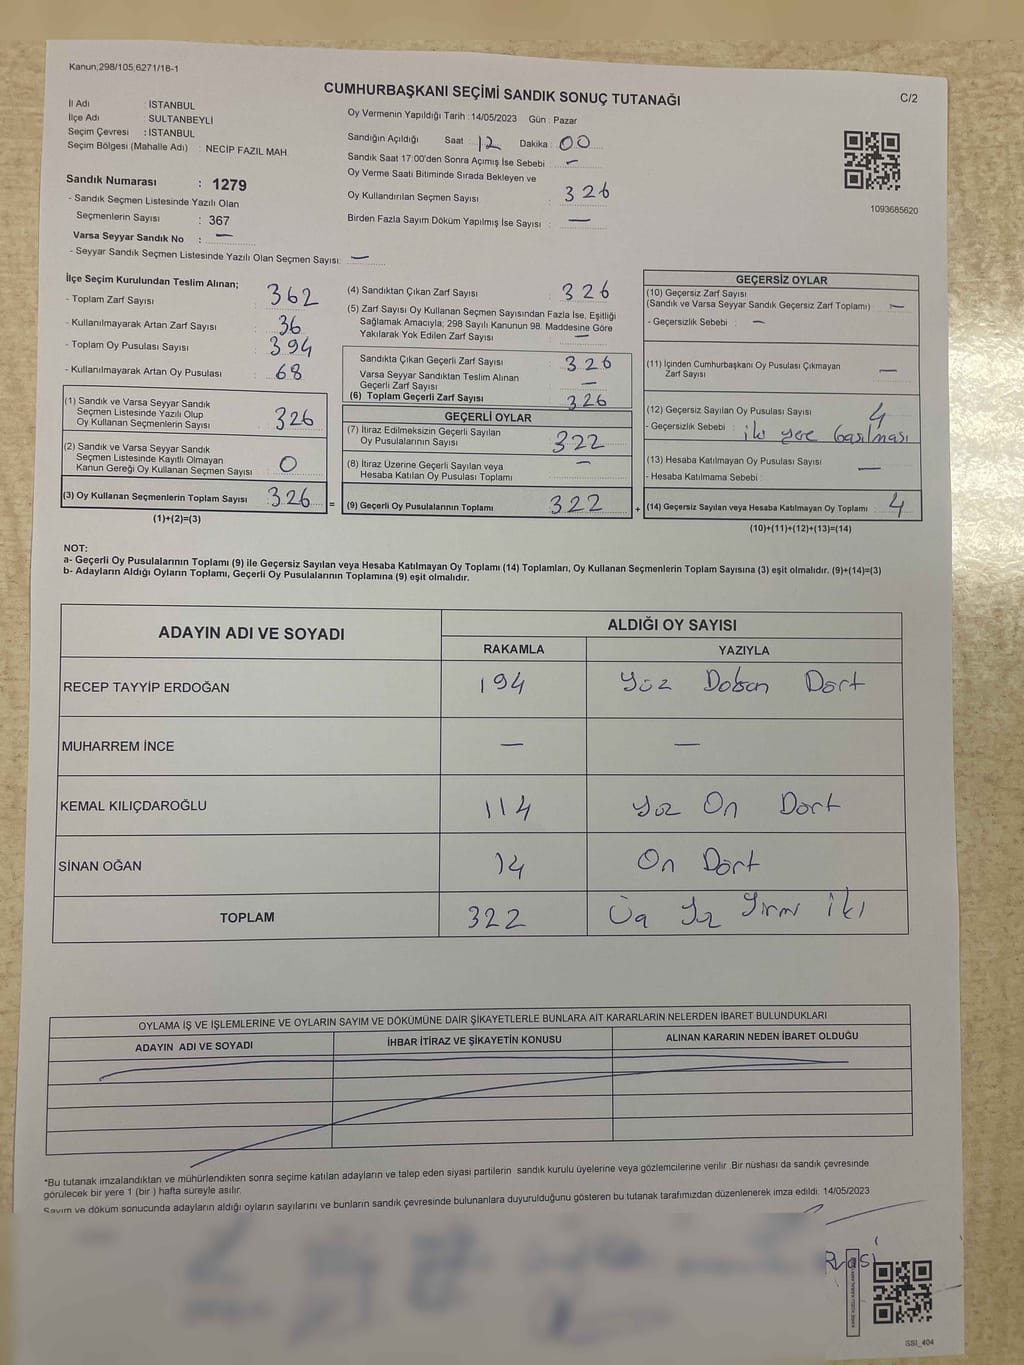 Kanun;298/105,6271/18-1
CUMHURBAŞKANI SEÇİMİ SANDIK SONUÇ TUTANAĞI
C/2
İl Adı : İSTANBUL
İlçe Adı : SULTANBEYLİ
Seçim Çevresi : İSTANBUL
Seçim Bölgesi (Mahalle Adı) : NECİP FAZIL MAH.
Oy Vermenin Yapıldığı Tarih : 14/05/2023 Gün : Pazar
Sandığın Açıldığı Saat : 12 Dakika : 00
Sandık Saat 17:00'den Sonra Açımış İse Sebebi : —
Oy Verme Saati Bitiminde Sırada Bekleyen ve
Oy Kullandırılan Seçmen Sayısı : 326
Birden Fazla Sayım Döküm Yapılmış İse Sayısı : —
1093685620
Sandık Numarası : 1279
- Sandık Seçmen Listesinde Yazılı Olan
Seçmenlerin Sayısı : 367
Varsa Seyyar Sandık No : —
- Seyyar Sandık Seçmen Listesinde Yazılı Olan Seçmen Sayısı: —
İlçe Seçim Kurulundan Teslim Alınan;
- Toplam Zarf Sayısı : 362
- Kullanılmayarak Artan Zarf Sayısı : 36
- Toplam Oy Pusulası Sayısı : 394
- Kullanılmayarak Artan Oy Pusulası : 68
(1) Sandık ve Varsa Seyyar Sandık
Seçmen Listesinde Yazılı Olup
Oy Kullanan Seçmenlerin Sayısı : 326
(2) Sandık ve Varsa Seyyar Sandık
Seçmen Listesinde Kayıtlı Olmayan
Kanun Gereği Oy Kullanan Seçmen Sayısı : 0
(3) Oy Kullanan Seçmenlerin Toplam Sayısı : 326 =
(1)+(2)=(3)
(4) Sandıktan Çıkan Zarf Sayısı : 326
(5) Zarf Sayısı Oy Kullanan Seçmen Sayısından Fazla İse, Eşitliği
Sağlamak Amacıyla; 298 Sayılı Kanunun 98. Maddesine Göre
Yakılarak Yok Edilen Zarf Sayısı : —
Sandıkta Çıkan Geçerli Zarf Sayısı : 326
Varsa Seyyar Sandıktan Teslim Alınan
Geçerli Zarf Sayısı : —
(6) Toplam Geçerli Zarf Sayısı : 326
GEÇERLİ OYLAR
(7) İtiraz Edilmeksizin Geçerli Sayılan
Oy Pusulalarının Sayısı : 322
(8) İtiraz Üzerine Geçerli Sayılan veya
Hesaba Katılan Oy Pusulası Toplamı : —
(9) Geçerli Oy Pusulalarının Toplamı : 322 +
GEÇERSİZ OYLAR
(10) Geçersiz Zarf Sayısı
(Sandık ve Varsa Seyyar Sandık Geçersiz Zarf Toplamı) : —
- Geçersizlik Sebebi : —
(11) İçinden Cumhurbaşkanı Oy Pusulası Çıkmayan
Zarf Sayısı : —
(12) Geçersiz Sayılan Oy Pusulası Sayısı : 4
- Geçersizlik Sebebi : iki yere basılması
(13) Hesaba Katılmayan Oy Pusulası Sayısı : —
- Hesaba Katılmama Sebebi :
(14) Geçersiz Sayılan veya Hesaba Katılmayan Oy Toplamı : 4
(10)+(11)+(12)+(13)=(14)
NOT:
a- Geçerli Oy Pusulalarının Toplamı (9) ile Geçersiz Sayılan veya Hesaba Katılmayan Oy Toplamı (14) Toplamları, Oy Kullanan Seçmenlerin Toplam Sayısına (3) eşit olmalıdır. (9)+(14)=(3)
b- Adayların Aldığı Oyların Toplamı, Geçerli Oy Pusulalarının Toplamına (9) eşit olmalıdır.
ADAYIN ADI VE SOYADI
ALDIĞI OY SAYISI
RAKAMLA YAZIYLA
RECEP TAYYİP ERDOĞAN 194 Yüz Doksan Dört
MUHARREM İNCE — —
KEMAL KILIÇDAROĞLU 114 Yüz On Dört
SİNAN OĞAN 14 On Dört
TOPLAM 322 Üç Yüz Yirmi İki
OYLAMA İŞ VE İŞLEMLERİNE VE OYLARIN SAYIM VE DÖKÜMÜNE DAİR ŞİKAYETLERLE BUNLARA AİT KARARLARIN NELERDEN İBARET BULUNDUKLARI
ADAYIN ADI VE SOYADI İHBAR İTİRAZ VE ŞİKAYETİN KONUSU ALINAN KARARIN NEDEN İBARET OLDUĞU
*Bu tutanak imzalandıktan ve mühürlendikten sonra seçime katılan adayların ve talep eden siyasi partilerin sandık kurulu üyelerine veya gözlemcilerine verilir. Bir nüshası da sandık çevresinde
görülecek bir yere 1 (bir ) hafta süreyle asılır.
Sayım ve döküm sonucunda adayların aldığı oyların sayılarını ve bunların sandık çevresinde bulunanlara duyurulduğunu gösteren bu tutanak tarafımızdan düzenlenerek imza edildi. 14/05/2023
SSI_404